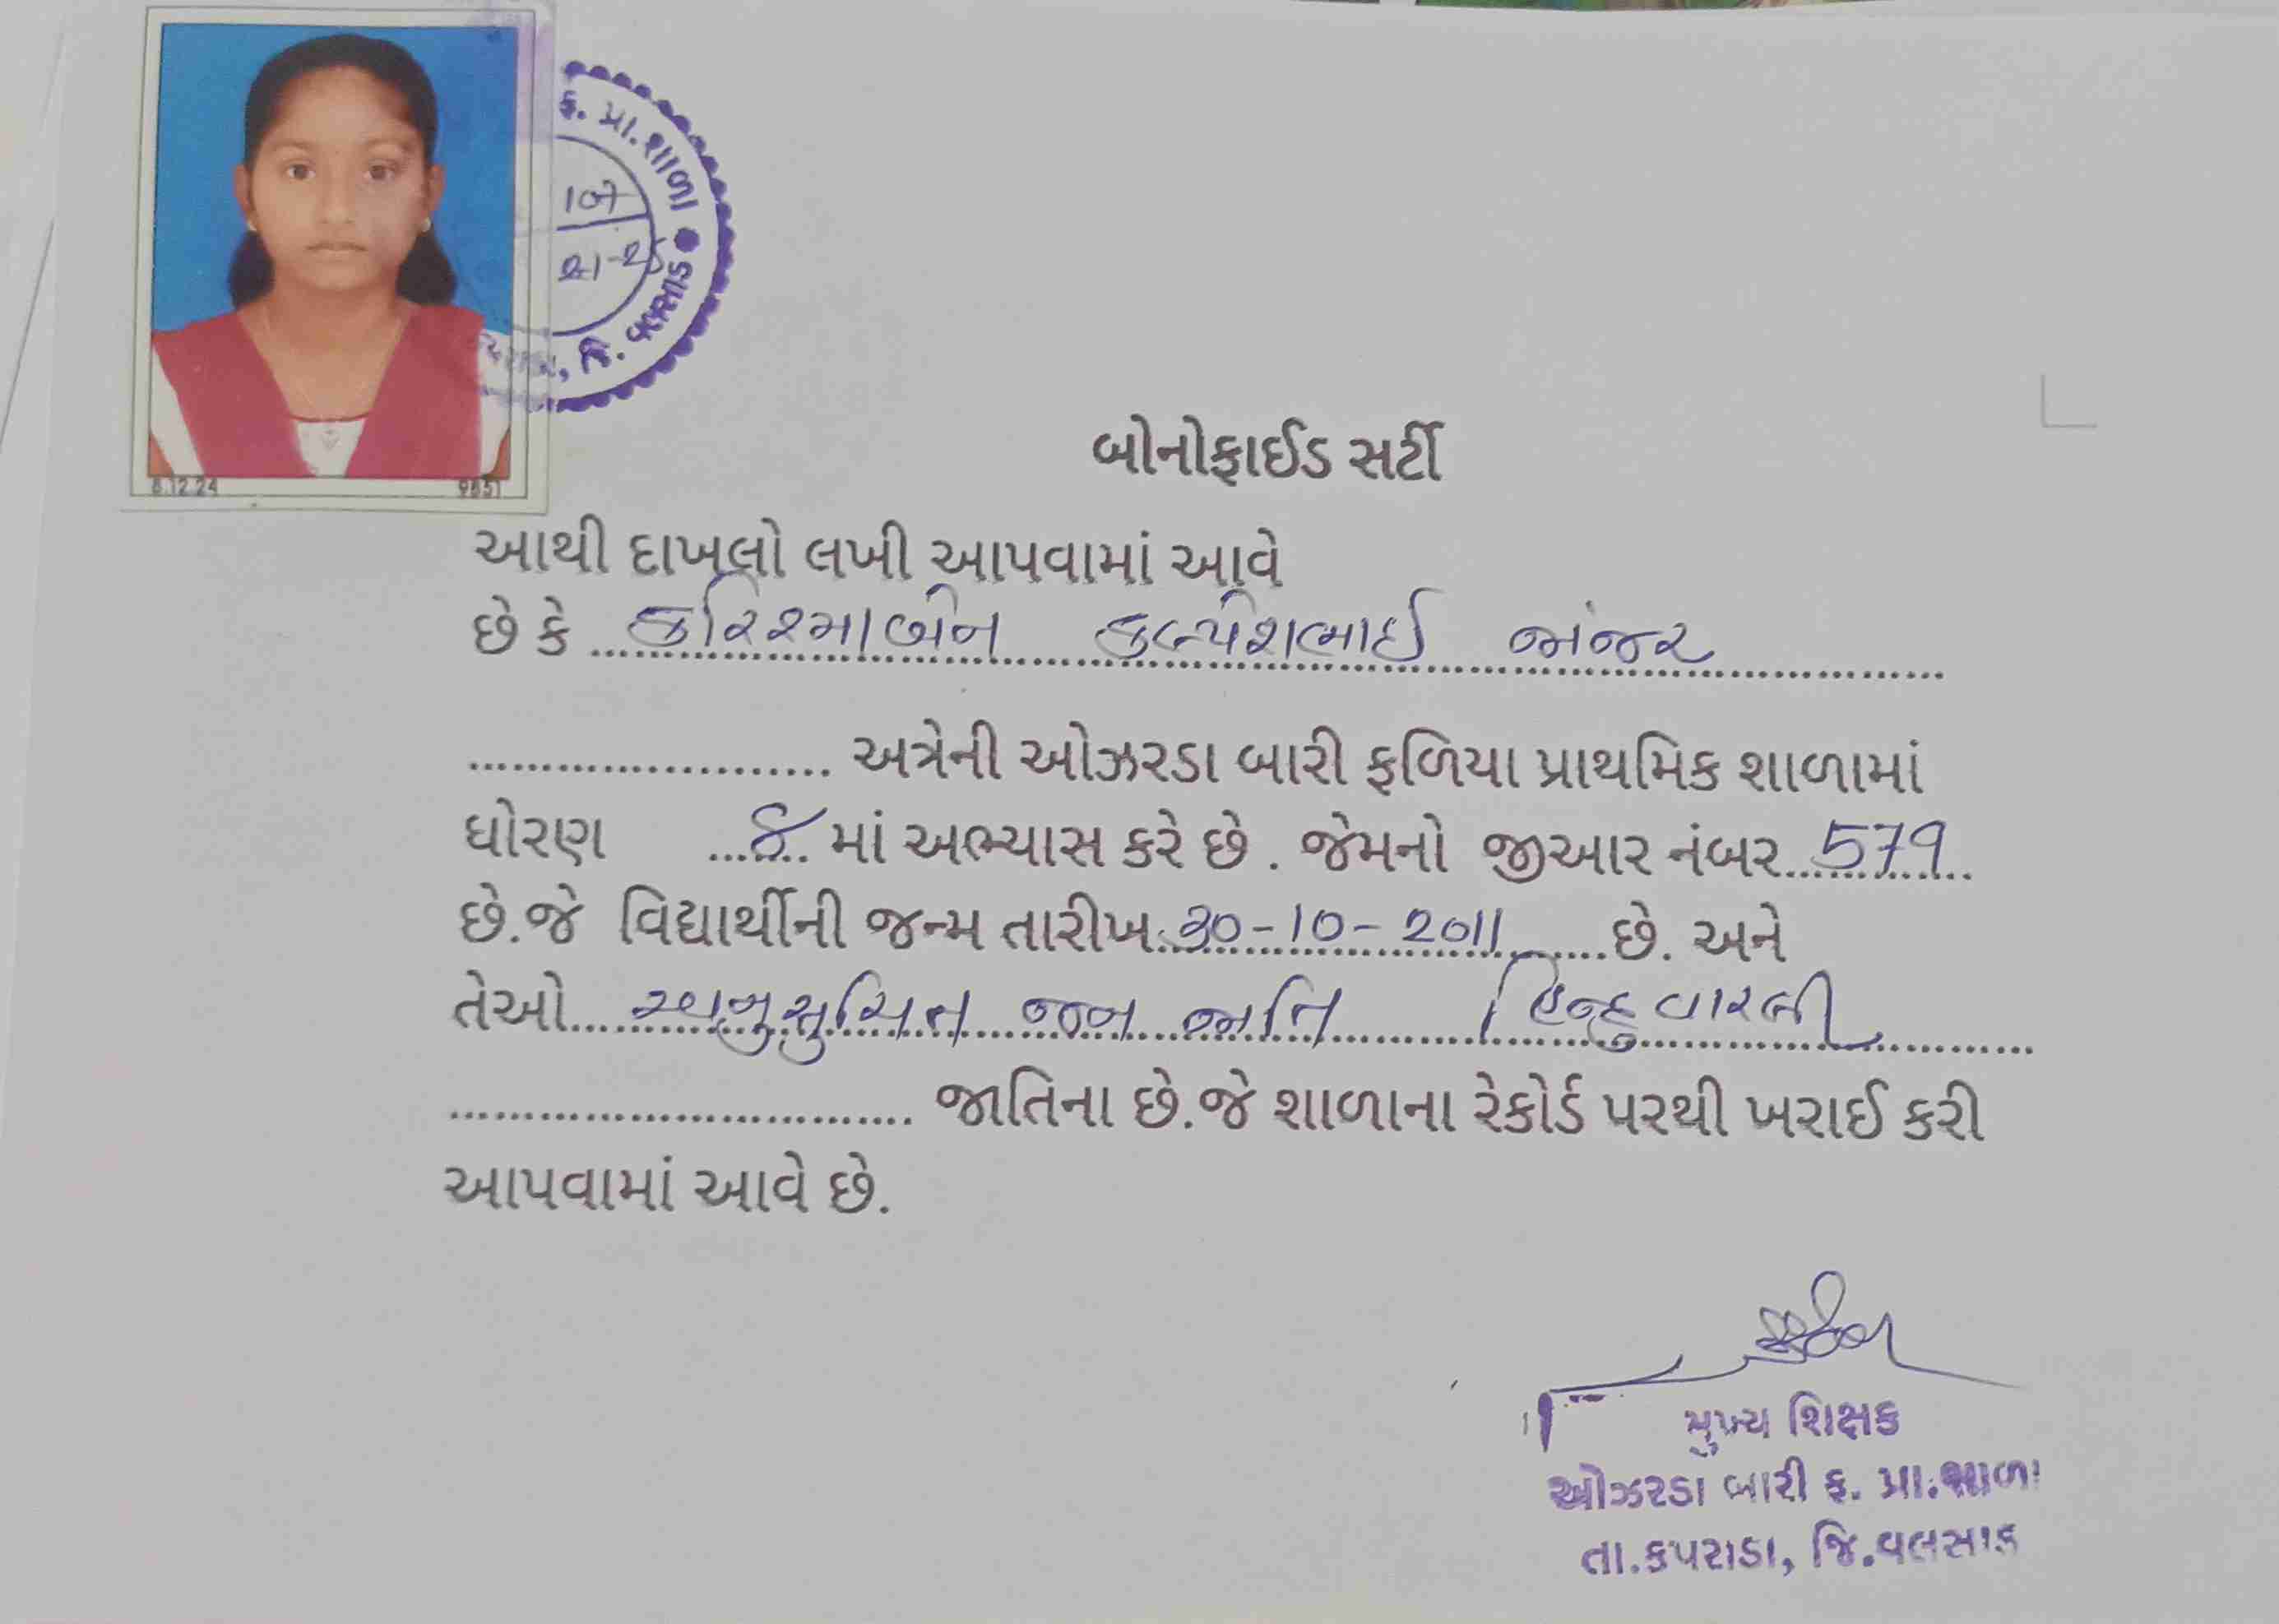 ફ. પ્રા. શાળા
જિ. વલસાડ
8.12.24
બોનોફાઈડ સર્ટી
આથી દાખલો લખી આપવામાં આવે
છે કે કરિશ્માબેન કલ્પેશભાઈ જાંજર
અત્રેની ઓઝરડા બારી ફળિયા પ્રાથમિક શાળામાં
ધોરણ ૪ માં અભ્યાસ કરે છે . જેમનો જીઆર નંબર 579
છે.જે વિદ્યાર્થીની જન્મ તારીખ 30-10-2011 છે. અને
તેઓ અનુસુચિત જન જાતિ હિન્દુ વારલી
જાતિના છે.જે શાળાના રેકોર્ડ પરથી ખરાઈ કરી
આપવામાં આવે છે.
મુખ્ય શિક્ષક
ઓઝરડા બારી ફ. પ્રા.શાળા
તા.કપરાડા, જિ.વલસાડ